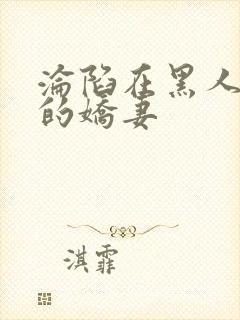 淪陷在黑人
的嬌妻
淇霏